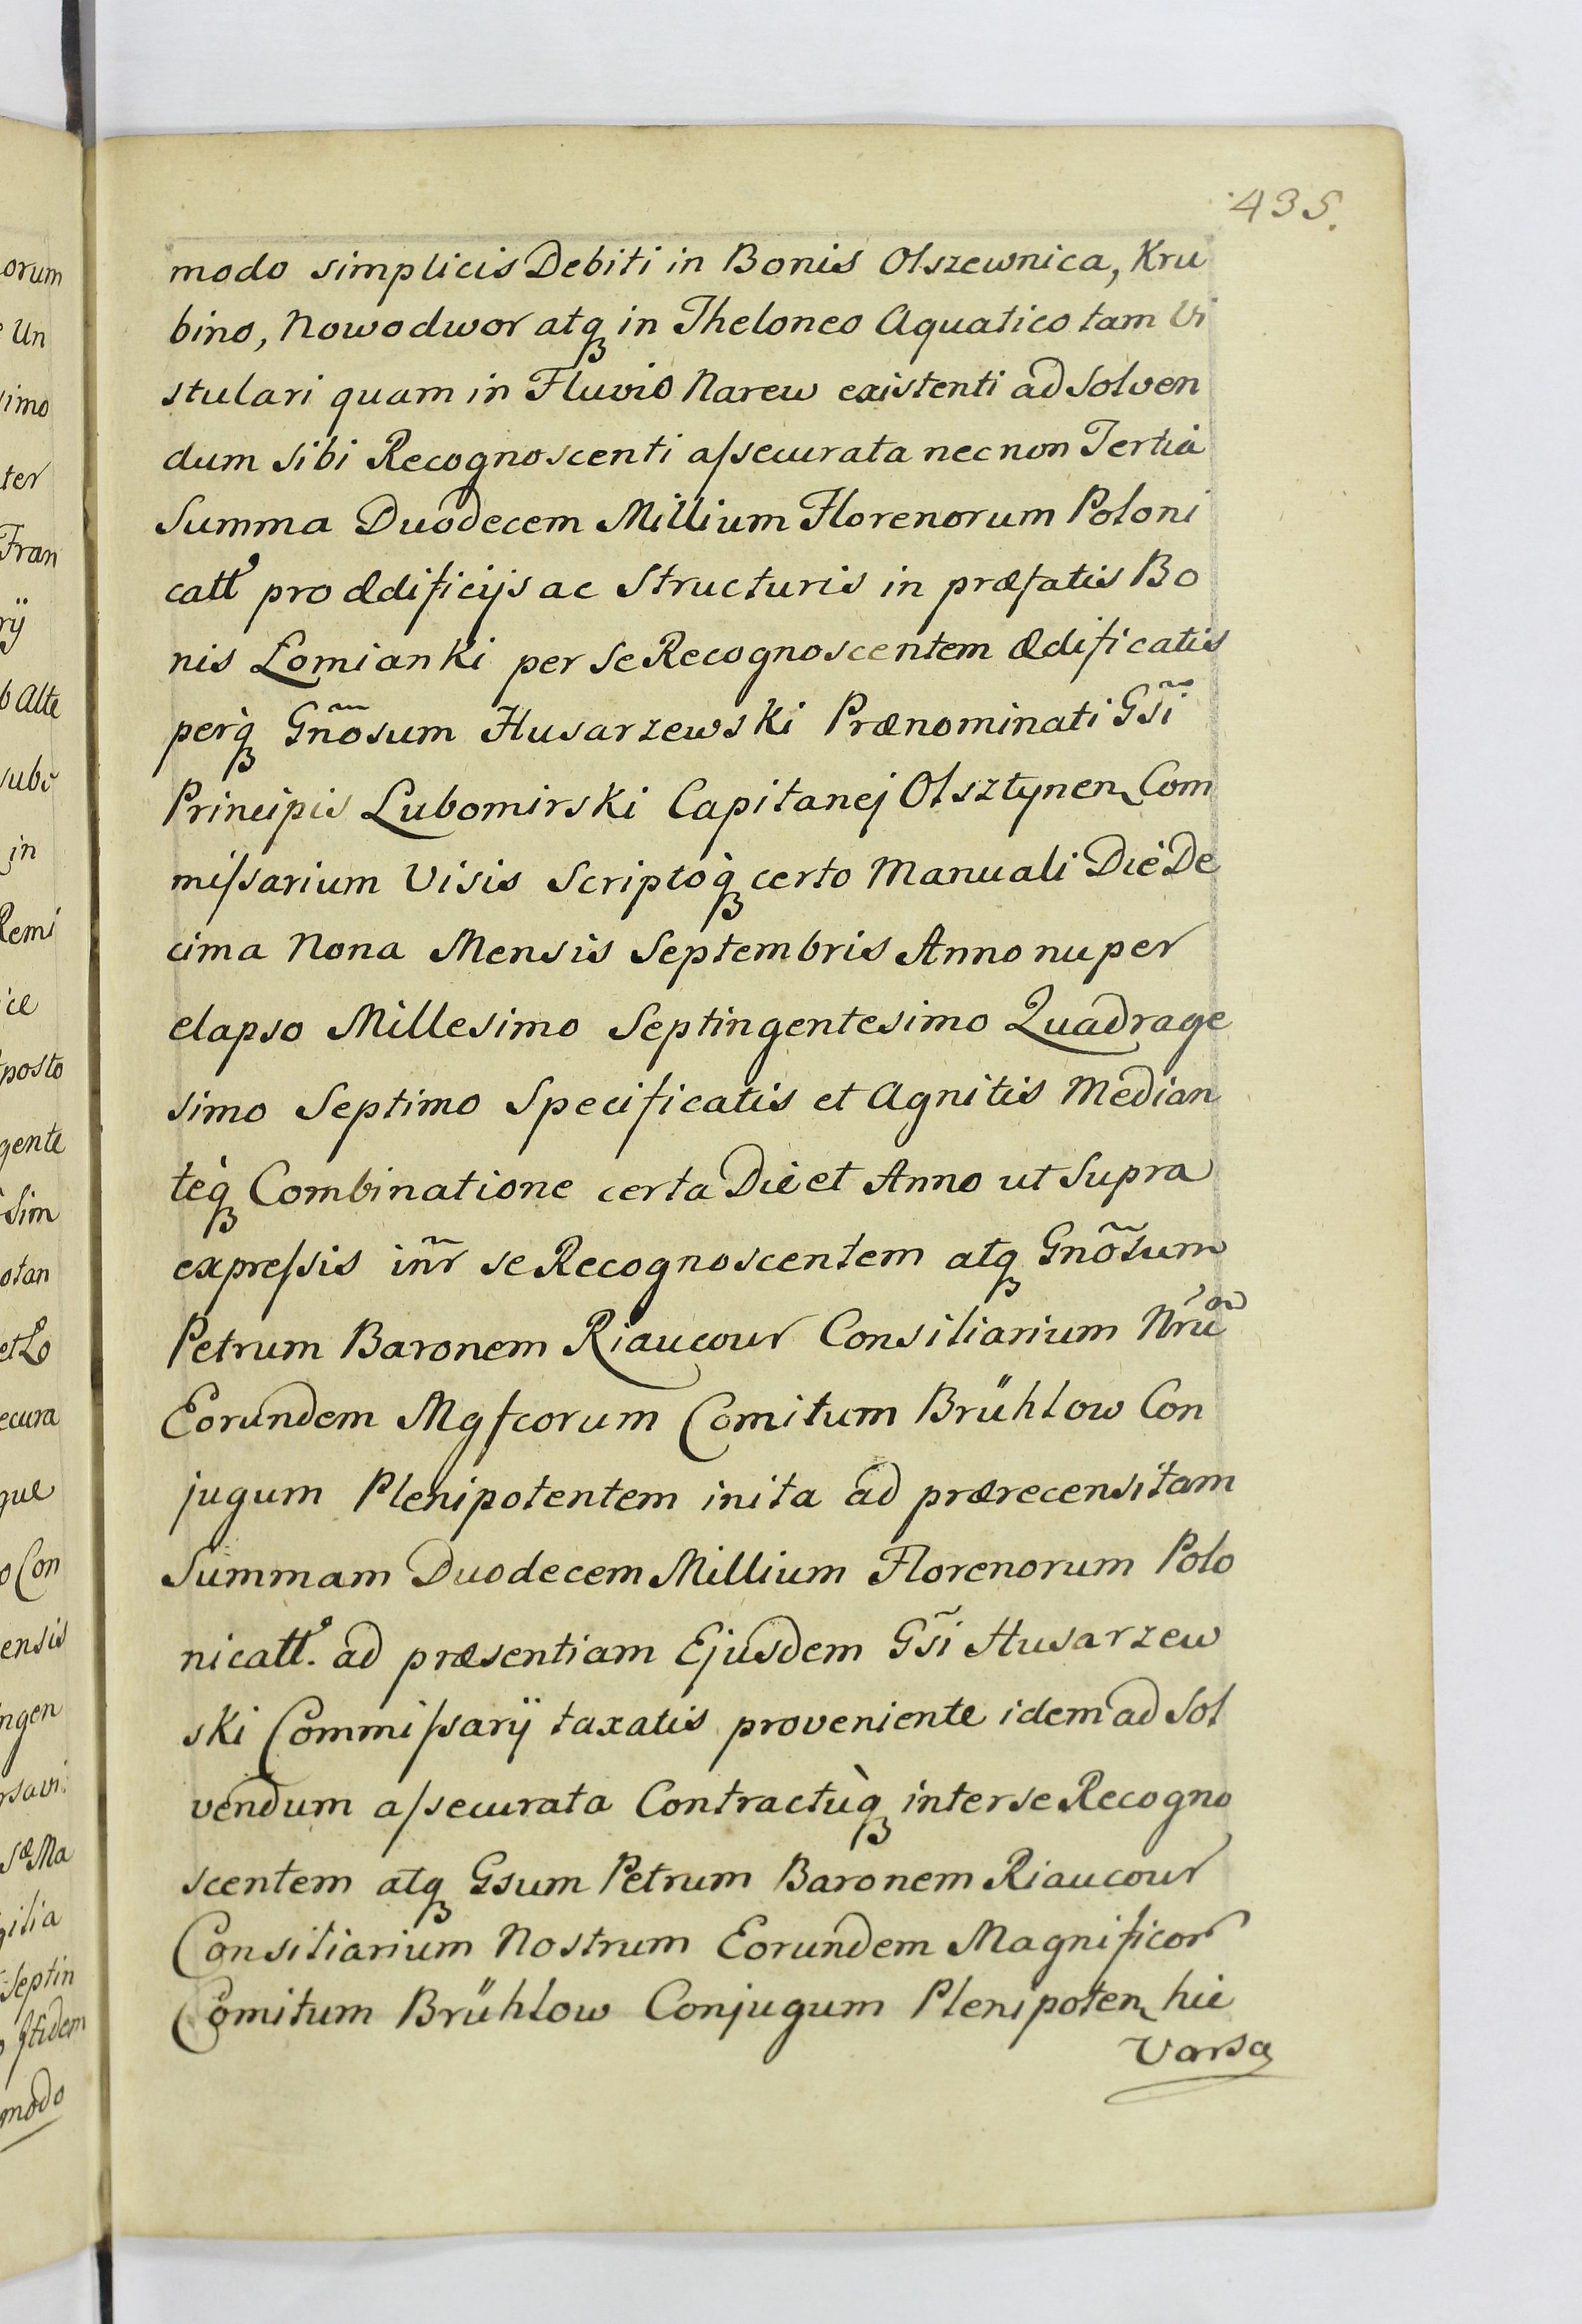 435.
modo simplicis Debiti in Bonis Olszewnica, Kru
bino, Nowodwor atq in Theloneo Aquatico tam Vi
stulari quam in Fluvio Narew existenti ad Solven
dum sibi Recognoscenti aſsecurata necnon Tertia
Summa Duodecem Millium Florenorum Poloni
catt pro Ædificijs ac Structuris in præfatis Bo
nis Łomianki per se Recognoscentem Ædificatis
perq̀ Gnõsum Husarzewski Prænominati Gs̃i
Principis Lubomirski Capitanej Olsztynen Com
miſsarium Visis Scriptoq̀ certo Manuali Die De
cima Nona Mensis Septembris Anno nuper
elapso Millesimo Septingentesimo Quadrage
simo Septimo Specificatis et Agnitis Median
teq̀ Combinatione certa Die et Anno ut Supra
expreſsis iñr se Recognoscentem atq Gnõsum
Petrum Baronem Riaucour Consiliarium Nrũ
Eorundem Mgfcorum Comitum Brühlow Con
jugum Plenipotentem inita ad prærecensitam
Summam Duodecem Millium Florenorum Polo
nicatt. ad præsentiam Ejusdem Gs̃i Husarzew
ski Commiſsarÿ taxatis proveniente idem ad Sol
vendum aſsecurata Contractùq interse Recogno
scentem atq Gsum Petrum Baronem Riaucour
Consiliarium Nostrum Eorundem Magnificor
Comitum Brühlow Conjugum Plenipoten hic
Varsa
orum
Un
simo
ter
Fran
rÿ
b Alte
subs
in
Remi
ice
posto
gente
Sim
otan
et Lo
ecura
que
o Con
ensis
ngen
rsavi
sæ Ma
gilia
Septin
modo